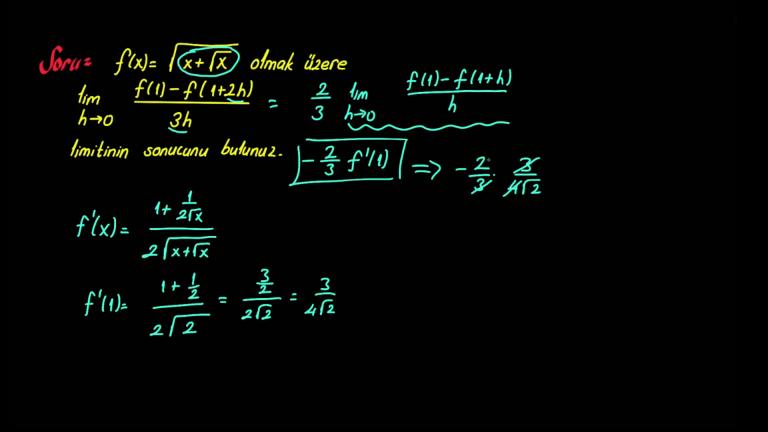 Soru= f(x)= √(x+√x) olmak üzere
lim h→0 (f(1)-f(1+2h))/3h = 2/3 lim h→0 (f(1)-f(1+h))/h
limitinin sonucunu bulunuz. -2/3 f'(1) ⇒ -2/3 · 3/4√2
f'(x)= (1+1/2√x)/(2√(x+√x))
f'(1)= (1+1/2)/(2√2) = (3/2)/(2√2) = 3/4√2